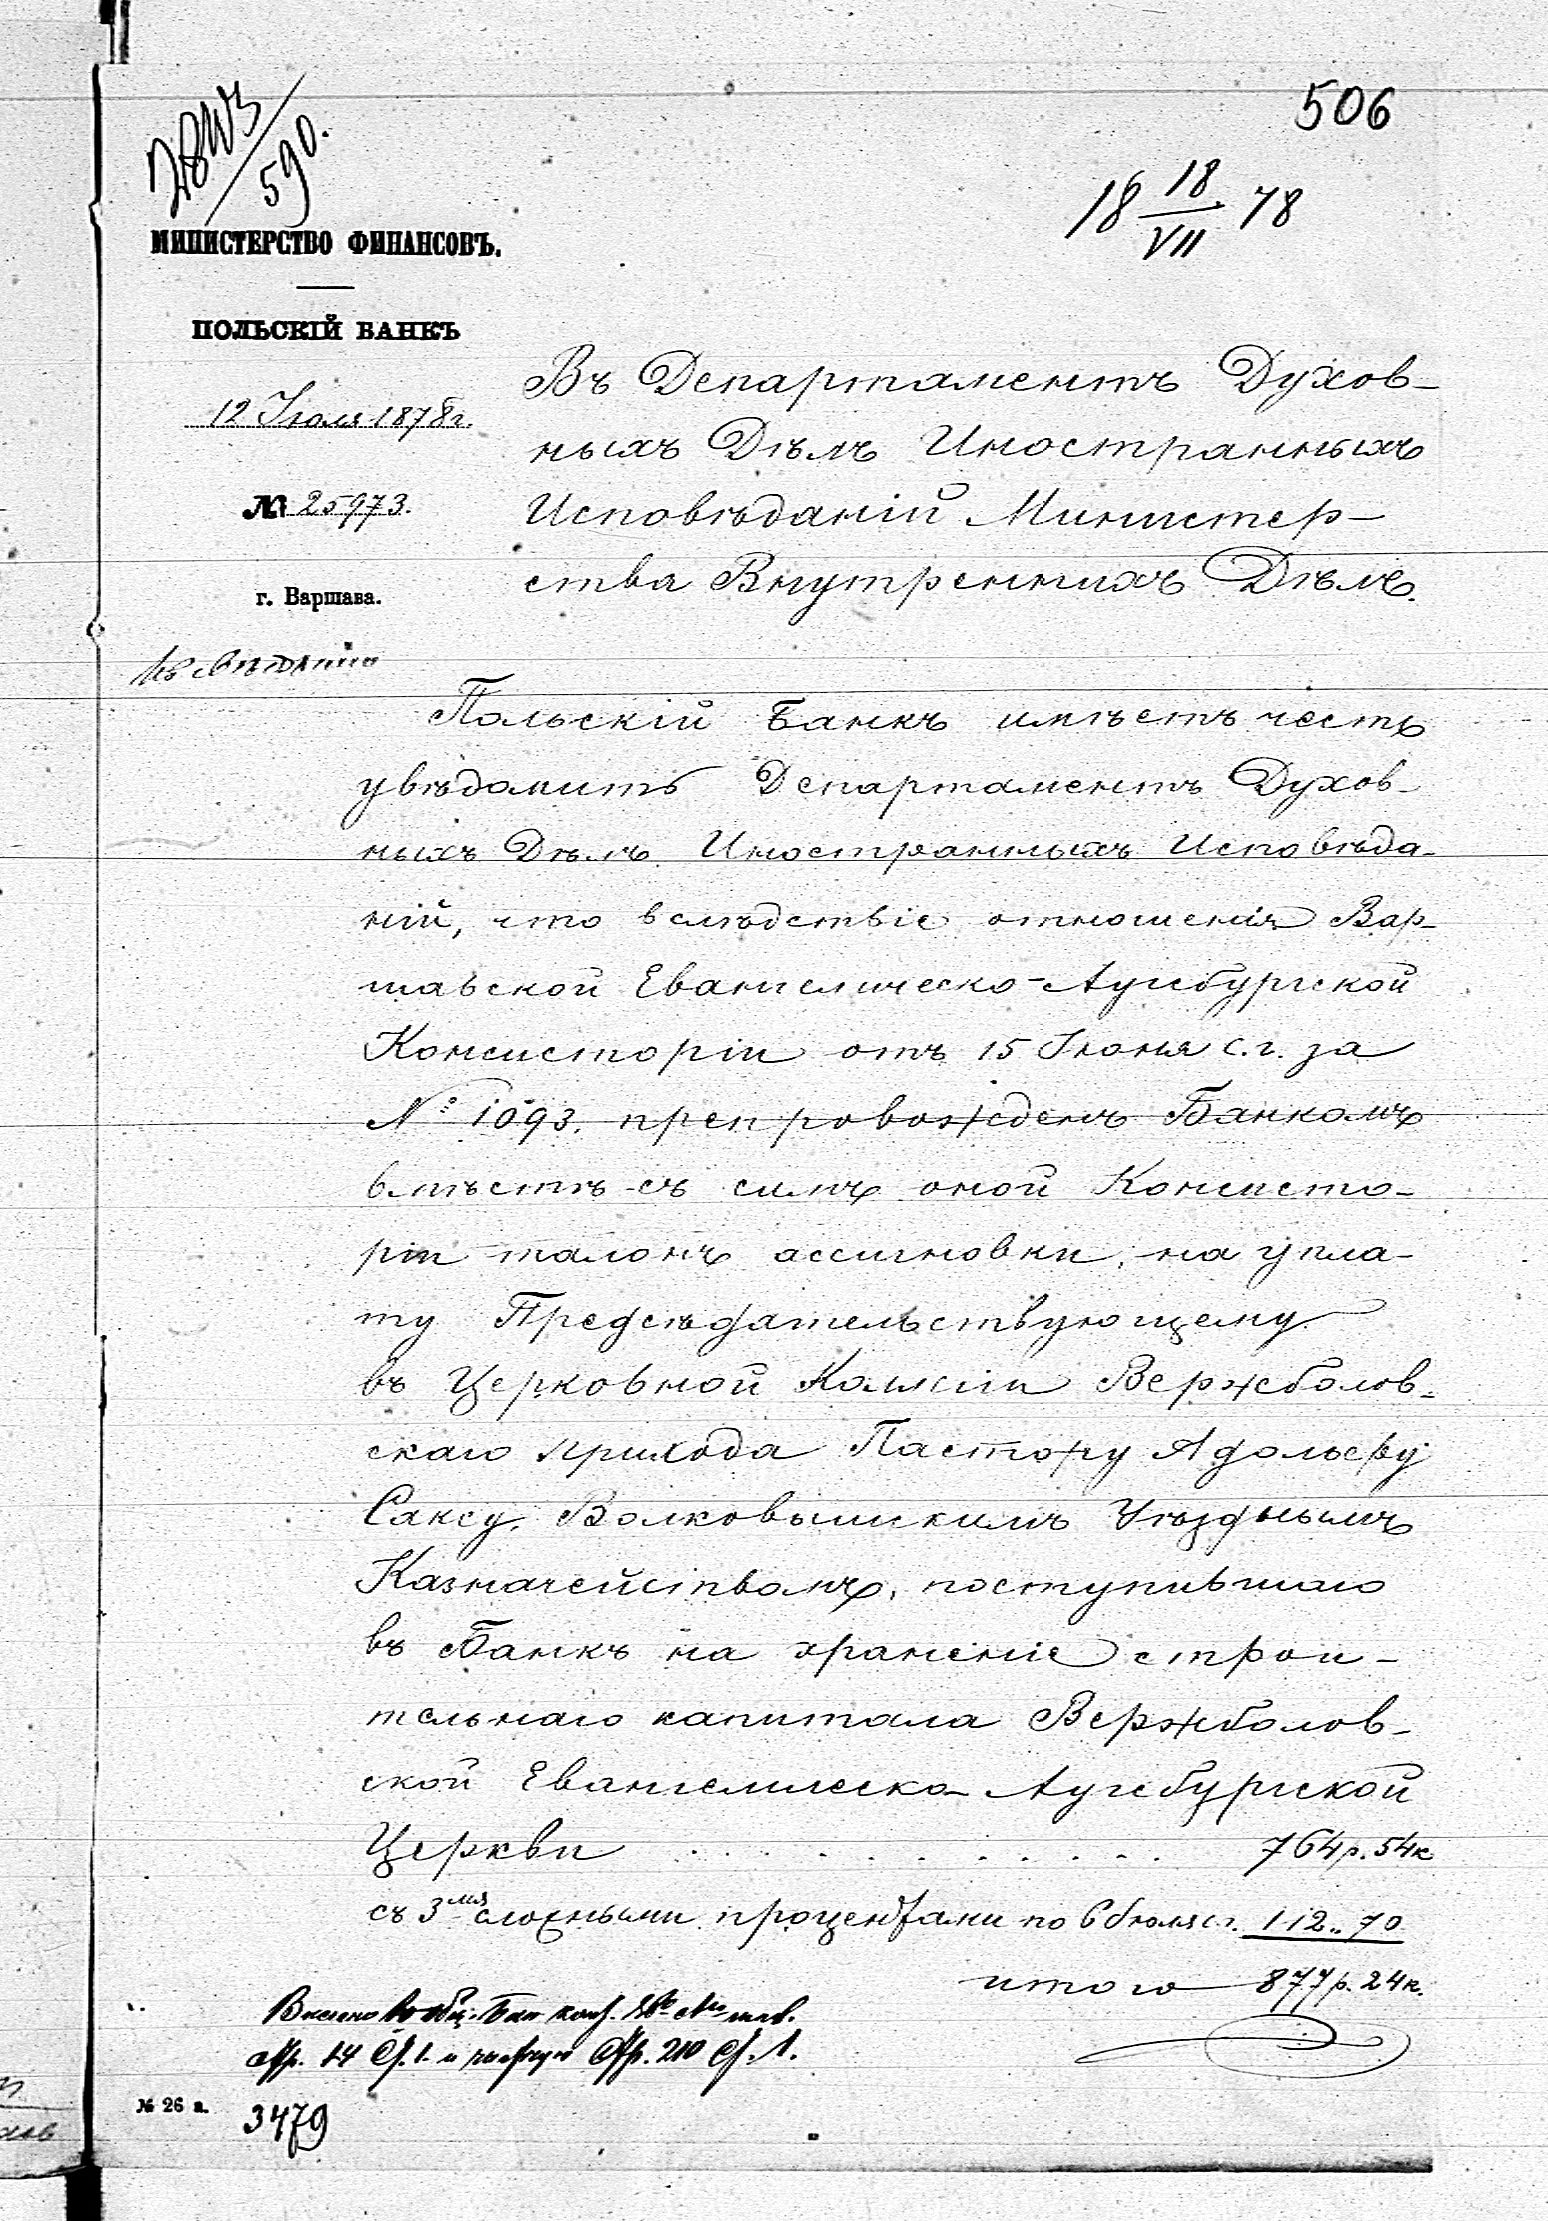 506
18 18/VII 78
590.
МИНИСТЕРСТВО ФИНАНСОВЪ.
ПОЛЬСКІЙ БАНКЪ
12 Іюля 1878 г.
№ 25973.
г. Варшава.
Къ свѣдѣнію
Въ Департаментъ Духов-
ныхъ Дѣлъ Иностранныхъ
Исповѣданій Министер-
ства Внутреннихъ Дѣлъ.
Польскій Банкъ имѣетъ честь
увѣдомить Департаментъ Духов-
ныхъ Дѣлъ Иностранныхъ Исповѣда-
ній, что вслѣдствіе отношенія Вар-
шавской Евангелическо-Аугсбургской
Консисторіи отъ 15 Іюня с.г. за
№ 1093. препровожденъ Банкомъ
вмѣстѣ съ симъ оной Консисто-
ріи талонъ ассигновки, на упла-
ту Предсѣдательствующему
въ Церковной Коллегіи Вержболов-
скаго прихода Пастору Адольфу
Саксу, Волковышскимъ Уѣзднымъ
Казначействомъ, поступившаго
въ Банкъ на храненіе строи-
тельнаго капитала Вержболов-
ской Евангелическо-Аугсбургской
Церкви . . . . . . . . . . 764 р. 54 к
съ 3мя сложными процентами по 6 Іюля с.г. 112 „ 70
итого 877 р. 24 к.
стр. 14 ст. 1 и стр. 210 ст. 1.
№ 26 а.
3479